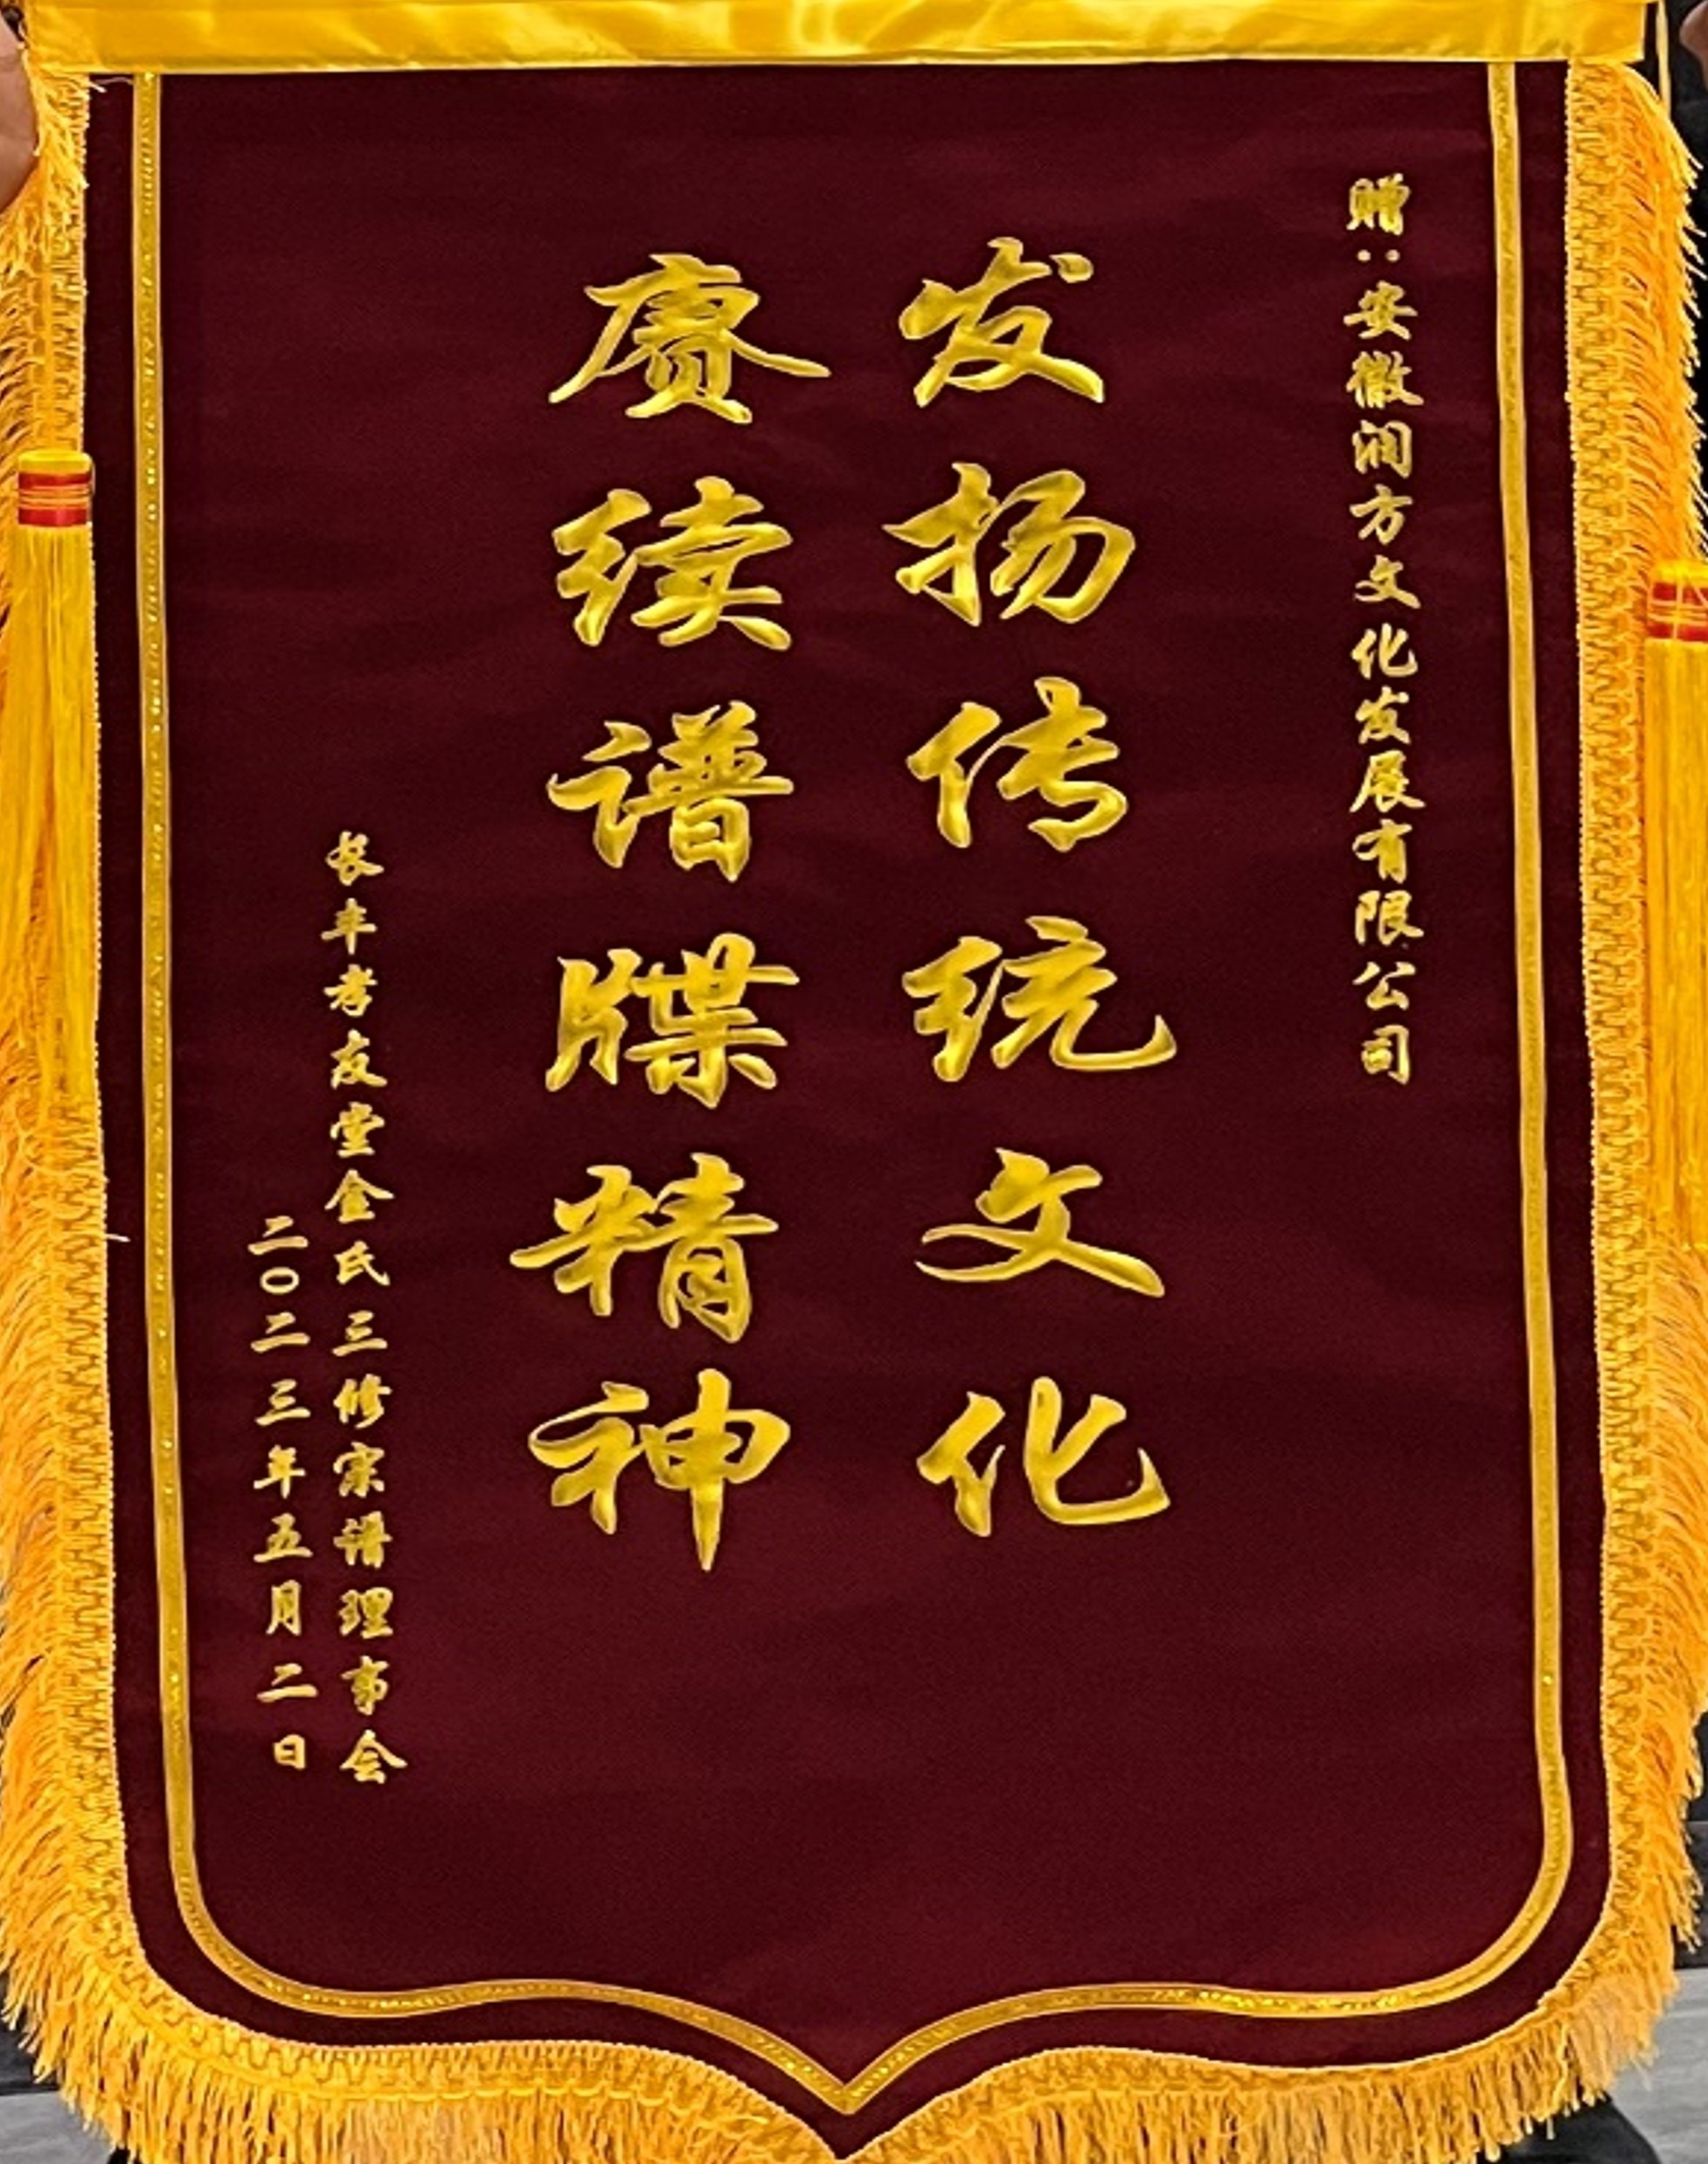 赠：安徽润方文化发展有限公司
发扬传统文化
赓续谱牒精神
长丰孝友堂金氏三修宗谱理事会
二〇二三年五月二日